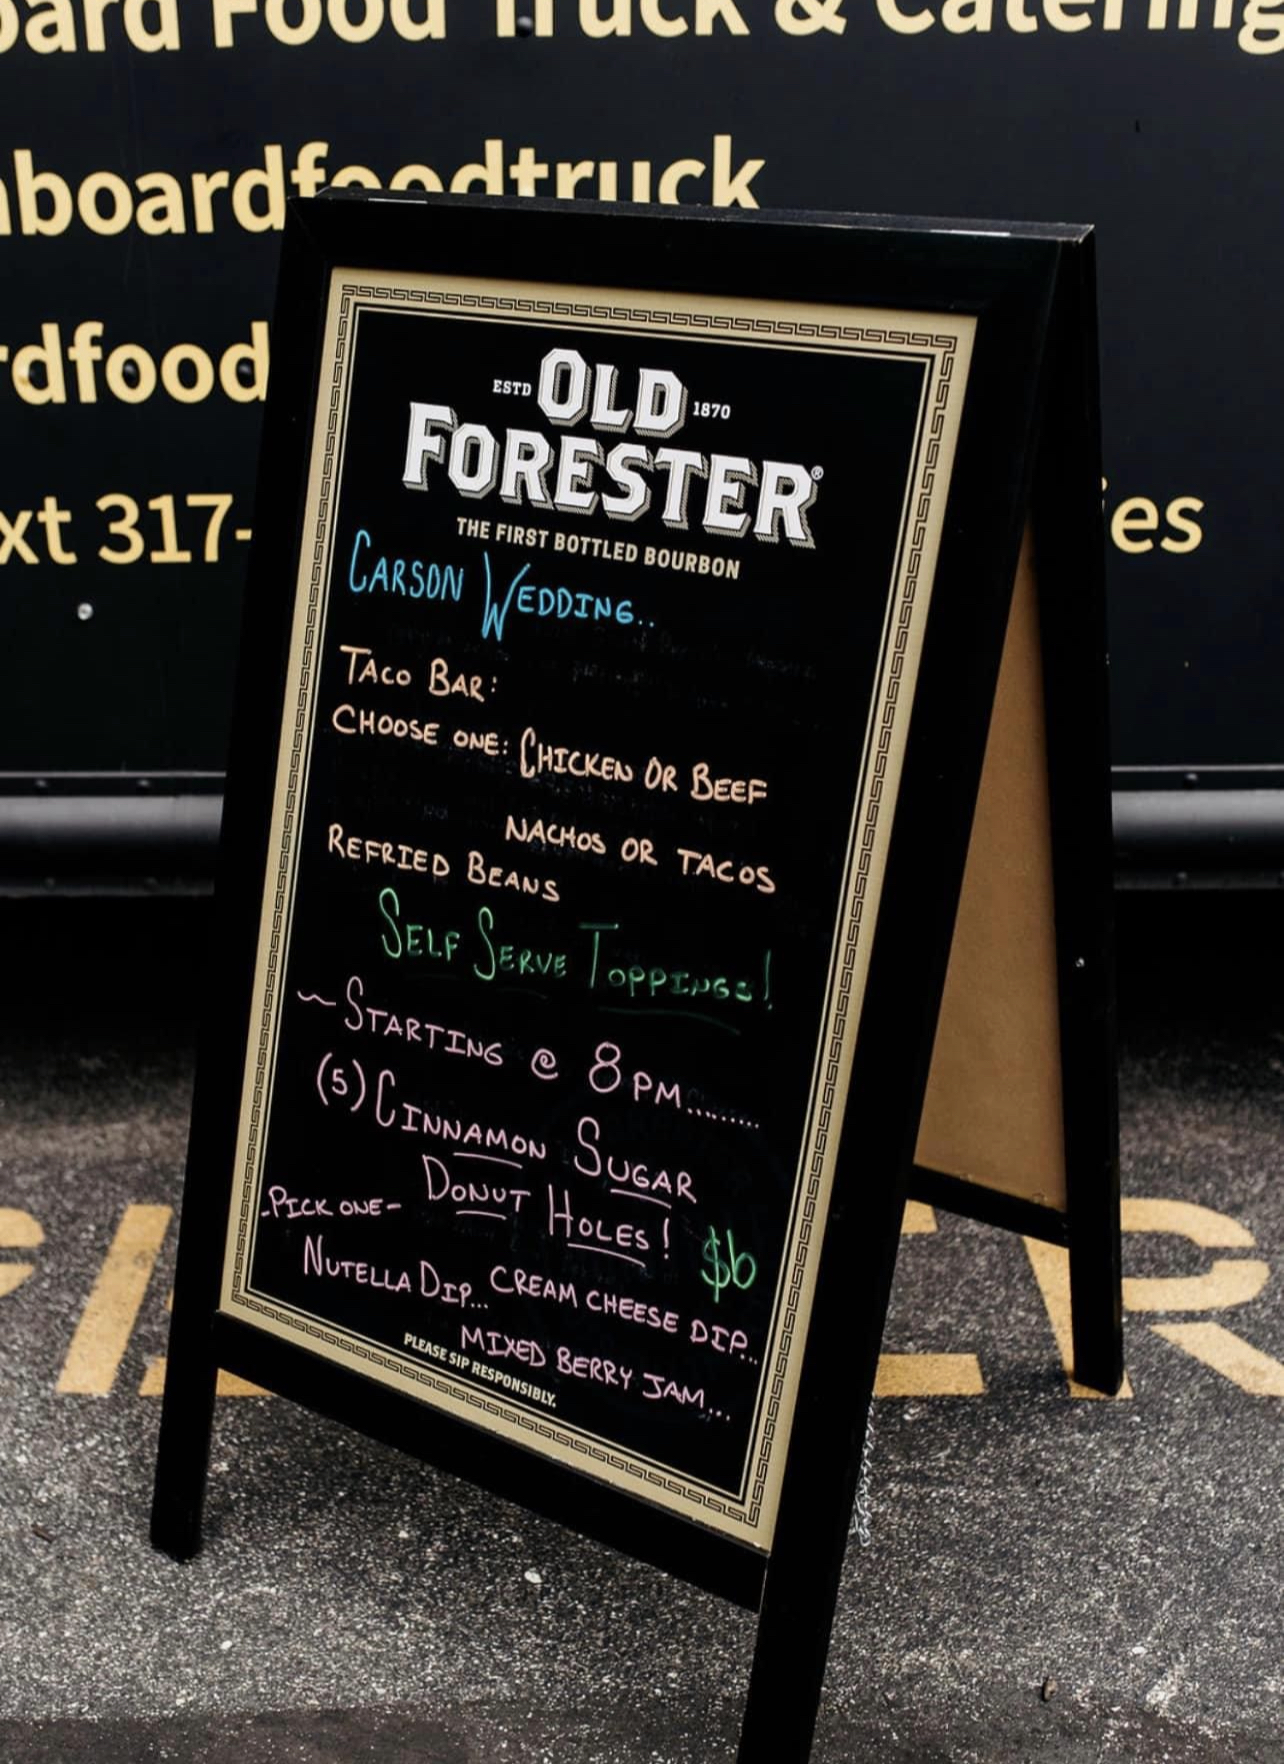 Food Truck & Catering
foodtruck
317-
ESTD OLD 1870
FORESTER®
THE FIRST BOTTLED BOURBON
CARSON WEDDING..
TACO BAR:
CHOOSE ONE: CHICKEN OR BEEF
NACHOS OR TACOS
REFRIED BEANS
SELF SERVE TOPPINGS!
~STARTING @ 8PM.........
(5) CINNAMON SUGAR
DONUT HOLES!
-PICK ONE-
$6
NUTELLA DIP... CREAM CHEESE DIP...
MIXED BERRY JAM...
PLEASE SIP RESPONSIBLY.